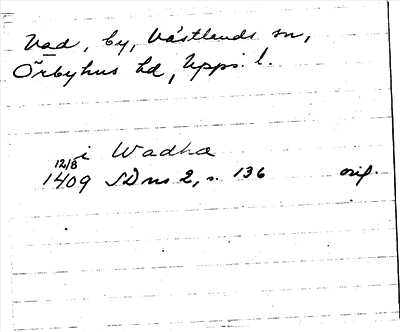 Vad, by, Västlands sn,
Örbyhus hd, Upps. l.
i Wadha
12/8
1409 SD ns 2, s. 136 orig.